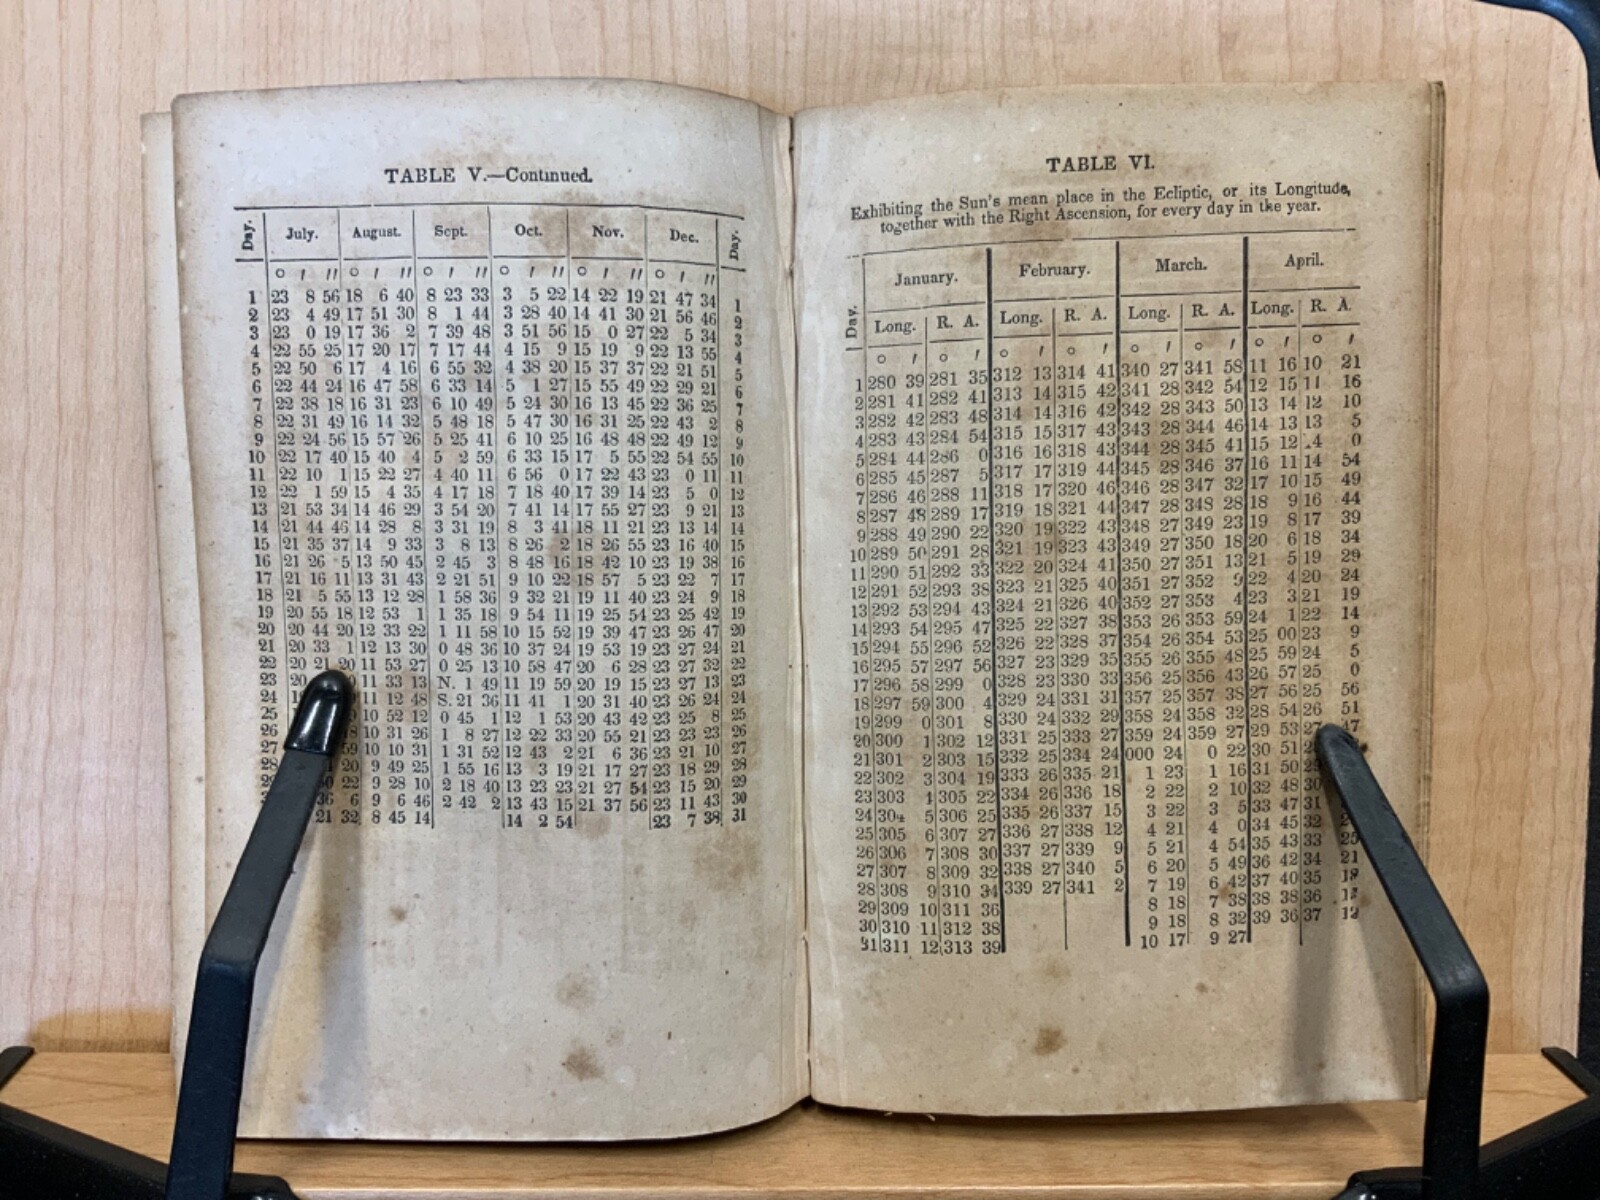 TABLE V.—Continued.
Day. July. August. Sept. Oct. Nov. Dec. Day.
° ′ ″ ° ′ ″ ° ′ ″ ° ′ ″ ° ′ ″ ° ′ ″
1 23 8 56 18 6 40 8 23 33 3 5 22 14 22 19 21 47 34 1
2 23 4 49 17 51 30 8 1 44 3 28 40 14 41 30 21 56 46 2
3 23 0 19 17 36 2 7 39 48 3 51 56 15 0 27 22 5 34 3
4 22 55 25 17 20 17 7 17 44 4 15 9 15 19 9 22 13 55 4
5 22 50 6 17 4 16 6 55 32 4 38 20 15 37 37 22 21 51 5
6 22 44 24 16 47 58 6 33 14 5 1 27 15 55 49 22 29 21 6
7 22 38 18 16 31 23 6 10 49 5 24 30 16 13 45 22 36 25 7
8 22 31 49 16 14 32 5 48 18 5 47 30 16 31 25 22 43 2 8
9 22 24 56 15 57 26 5 25 41 6 10 25 16 48 48 22 49 12 9
10 22 17 40 15 40 4 5 2 59 6 33 15 17 5 55 22 54 55 10
11 22 10 1 15 22 27 4 40 11 6 56 0 17 22 43 23 0 11 11
12 22 1 59 15 4 35 4 17 18 7 18 40 17 39 14 23 5 0 12
13 21 53 34 14 46 29 3 54 20 7 41 14 17 55 27 23 9 21 13
14 21 44 46 14 28 8 3 31 19 8 3 41 18 11 21 23 13 14 14
15 21 35 37 14 9 33 3 8 13 8 26 2 18 26 55 23 16 40 15
16 21 26 5 13 50 45 2 45 3 8 48 16 18 42 10 23 19 38 16
17 21 16 11 13 31 43 2 21 51 9 10 22 18 57 5 23 22 7 17
18 21 5 55 13 12 28 1 58 36 9 32 21 19 11 40 23 24 9 18
19 20 55 18 12 53 1 1 35 18 9 54 11 19 25 54 23 25 42 19
20 20 44 20 12 33 22 1 11 58 10 15 52 19 39 47 23 26 47 20
21 20 33 1 12 13 30 0 48 36 10 37 24 19 53 19 23 27 24 21
22 20 21 20 11 53 27 0 25 13 10 58 47 20 6 28 23 27 32 22
23 20 11 33 13 N. 1 49 11 19 59 20 19 15 23 27 13 23
24 11 12 48 S. 21 36 11 41 1 20 31 40 23 26 24 24
25 10 52 12 0 45 1 12 1 53 20 43 42 23 25 8 25
26 10 31 26 1 8 27 12 22 33 20 55 21 23 23 23 26
27 59 10 10 31 1 31 52 12 43 2 21 6 36 23 21 10 27
28 20 9 49 25 1 55 16 13 3 19 21 17 27 23 18 29 28
22 9 28 10 2 18 40 13 23 23 21 27 54 23 15 20 29
36 6 9 6 46 2 42 2 13 43 15 21 37 56 23 11 43 30
21 32 8 45 14 14 2 54 23 7 38 31
TABLE VI.
Exhibiting the Sun's mean place in the Ecliptic, or its Longitude,
together with the Right Ascension, for every day in the year.
Day. January. February. March. April.
Long. R. A. Long. R. A. Long. R. A. Long. R. A.
° ′ ° ′ ° ′ ° ′ ° ′ ° ′ ° ′ ° ′
1 280 39 281 35 312 13 314 41 340 27 341 58 11 16 10 21
2 281 41 282 41 313 14 315 42 341 28 342 54 12 15 11 16
3 282 42 283 48 314 14 316 42 342 28 343 50 13 14 12 10
4 283 43 284 54 315 15 317 43 343 28 344 46 14 13 13 5
5 284 44 286 0 316 16 318 43 344 28 345 41 15 12 .4 0
6 285 45 287 5 317 17 319 44 345 28 346 37 16 11 14 54
7 286 46 288 11 318 17 320 46 346 28 347 32 17 10 15 49
8 287 48 289 17 319 18 321 44 347 28 348 28 18 9 16 44
9 288 49 290 22 320 19 322 43 348 27 349 23 19 8 17 39
10 289 50 291 28 321 19 323 43 349 27 350 18 20 6 18 34
11 290 51 292 33 322 20 324 41 350 27 351 13 21 5 19 29
12 291 52 293 38 323 21 325 40 351 27 352 9 22 4 20 24
13 292 53 294 43 324 21 326 40 352 27 353 4 23 3 21 19
14 293 54 295 47 325 22 327 38 353 26 353 59 24 1 22 14
15 294 55 296 52 326 22 328 37 354 26 354 53 25 00 23 9
16 295 57 297 56 327 23 329 35 355 26 355 48 25 59 24 5
17 296 58 299 0 328 23 330 33 356 25 356 43 26 57 25 0
18 297 59 300 4 329 24 331 31 357 25 357 38 27 56 25 56
19 299 0 301 8 330 24 332 29 358 24 358 32 28 54 26 51
20 300 1 302 12 331 25 333 27 359 24 359 27 29 53 27 47
21 301 2 303 15 332 25 334 24 000 24 0 22 30 51
22 302 3 304 19 333 26 335 21 1 23 1 16 31 50
23 303 4 305 22 334 26 336 18 2 22 2 10 32 48 30
24 304 5 306 25 335 26 337 15 3 22 3 5 33 47 31
25 305 6 307 27 336 27 338 12 4 21 4 0 34 45 32
26 306 7 308 30 337 27 339 9 5 21 4 54 35 43 33 25
27 307 8 309 32 338 27 340 5 6 20 5 49 36 42 34 21
28 308 9 310 34 339 27 341 2 7 19 6 42 37 40 35 18
29 309 10 311 36 8 18 7 38 38 38 36
30 310 11 312 38 9 18 8 32 39 36 37 12
31 311 12 313 39 10 17 9 27